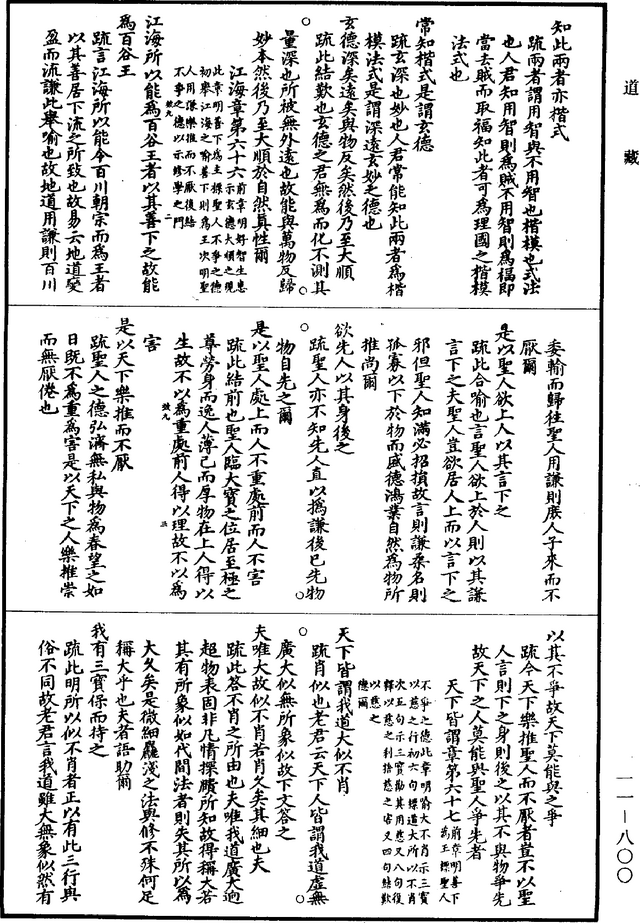 道藏
知此兩者亦楷式
疏兩者謂用智與不用智也楷模也式法
也人君知用智則為賊不用智則為福即
當去賊而取福知此者可為理國之楷模
法式也
常知楷式是謂玄德
疏玄深也妙也人君常能知此兩者為楷
模法式是謂深遠玄妙之德也
玄德深矣遠矣與物反矣然後乃至大順
疏此結歎也玄德之君無為而化不測其
量深也所被無外遠也故能與萬物反歸
妙本然後乃至大順於自然真性爾
江海章第六十六
前章明好智生患
示玄德大順之規
此章明善下為主標聖人不爭之德
初舉江海之喻善下則為王次明聖
人用謙樂推而不厭後結
不爭之德以示修學之門
江海所以能為百谷王者以其善下之故能
為百谷王
疏言江海所以能令百川朝宗而為王者
以其善居下流之所致也故易云地道變
盈而流謙此舉喻也故地道用謙則百川
委輸而歸往聖人用謙則庶人子來而不
厭爾
是以聖人欲上人以其言下之
疏此合喻也言聖人欲上於人則以其謙
言下之夫聖人豈欲居人上而以言下之
邪但聖人知滿必招損故言則謙柔名則
孤寡以下於物而盛德鴻業自然為物所
推尚爾
欲先人以其身後之
疏聖人亦不知先人直以撝謙後已先物
物自先之爾
是以聖人處上而人不重處前而人不害
疏此結前也聖人臨大寶之位居至極之
尊勞身而逸人薄已而厚物在上人得以
生故不以為重處前人得以理故不以為
害
是以天下樂推而不厭
疏聖人之德弘濟無私與物為春望之如
日既不為重為害是以天下之人樂推崇
而無厭倦也
以其不爭故天下莫能與之爭
疏今天下樂推聖人而不厭者豈不以聖
人言則下之身則後之以其不與物爭先
故天下之人莫能與聖人爭先者
天下皆謂章第六十七
前章明善下
為王標聖人
不爭之德此章明喻大不肖示三寶
以慈之行初六句標道大所以不肖
次五句示三寶勸其用慈又八句後
釋以慈之利捨慈之害又四句結歎
以慈之
德爾
天下皆謂我道大似不肖
疏肖似也老君云天下人皆謂我道虛無
廣大似無所象似故下文答之
夫唯大故似不肖若肖久矣其細也夫
疏此答不肖之所由也夫唯我道廣大迥
超物表固非凡情探賾所知故得稱大若
其有所象似如代間法者則失其所以為
大久矣是微細麤淺之法與修不殊何足
稱大乎也夫者語助爾
我有三寶保而持之
疏此明所以似不肖者正以有此三行與
俗不同故老君言我道雖大無象似然有
一一—八〇〇